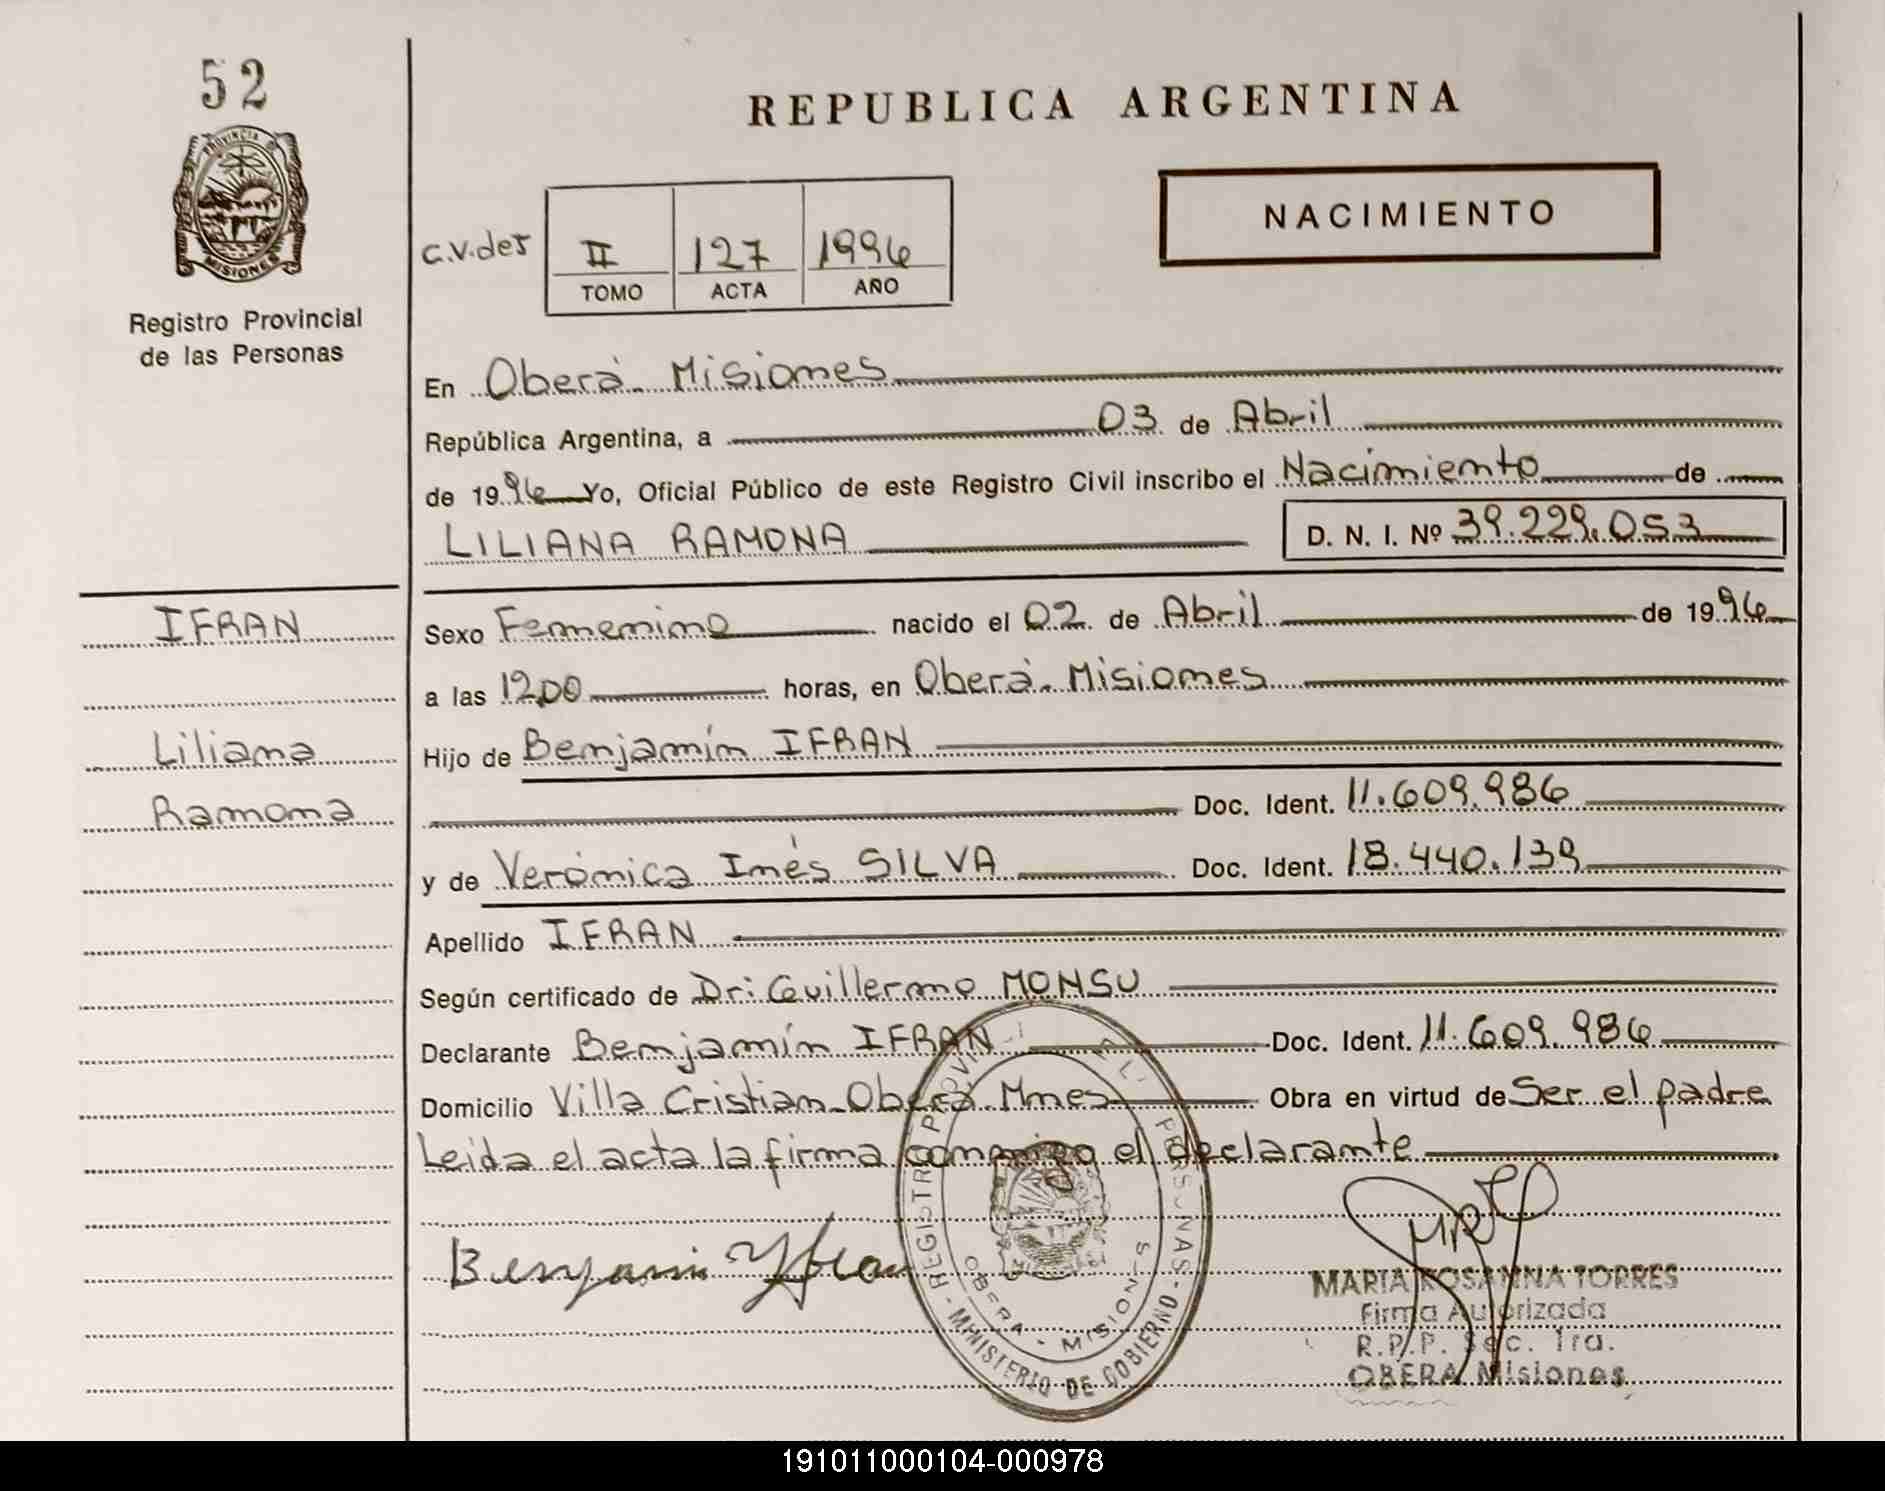 52
REPUBLICA ARGENTINA
PROVINCIA DE
MISIONES
Registro Provincial
de las Personas
NACIMIENTO
c.v.der
II 127 1996
TOMO ACTA AÑO
En Oberá Misiones
República Argentina, a 03 de Abril
de 1996 Yo, Oficial Público de este Registro Civil inscribo el Nacimiento de
LILIANA RAMONA D. N. I. Nº 39.229.053
IFRAN
Liliana
Ramona
Sexo Femenino nacido el 02 de Abril de 1996
a las 12,00 horas, en Oberá. Misiones
Hijo de Benjamín IFRAN
Doc. Ident. 11.609.986
y de Verónica Inés SILVA Doc. Ident. 18.440.139
Apellido IFRAN
Según certificado de Dr: Guillermo MONSU
Declarante Benjamín IFRAN Doc. Ident. 11.609.986
Domicilio Villa Cristian Oberá Mnes Obra en virtud de Ser el padre
Leida el acta la firma conmigo el declarante
Benjamin Yfran
REGISTRO PROVINCIAL PERSONAS - MINISTERIO DE GOBIERNO
OBERA - MISIONES
MARIA ROSANNA TORRES
Firma Autorizada
R.P.P. Sec. 1ra.
OBERA Misiones
191011000104-000978